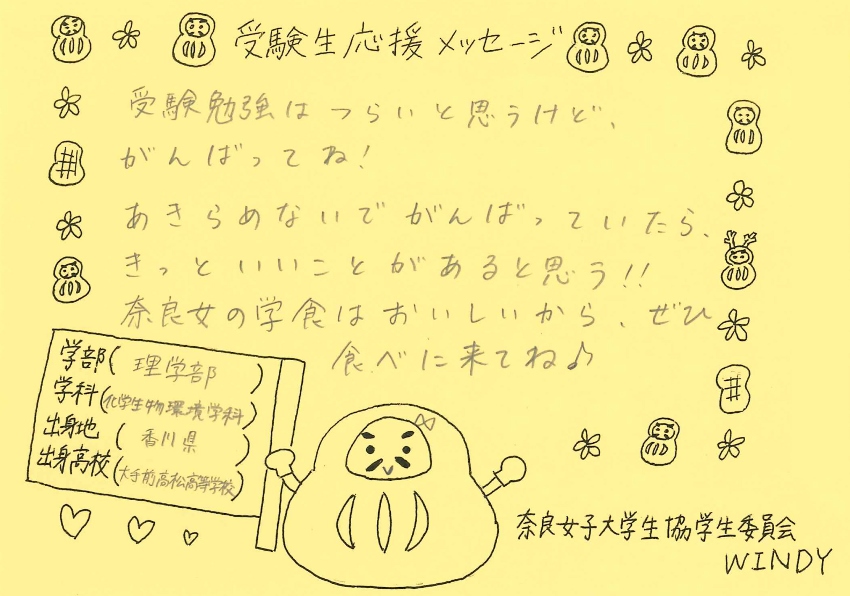 受験生応援メッセージ
受験勉強はつらいと思うけど、
がんばってね!
あきらめないでがんばっていたら、
きっといいことがあると思う!!
奈良女の学食はおいしいから、ぜひ
食べに来てね♪
学部(理学部)
学科(化学生物環境学科)
出身地(香川県)
出身高校(大手前高松高等学校)
奈良女子大学生協学生委員会
WINDY